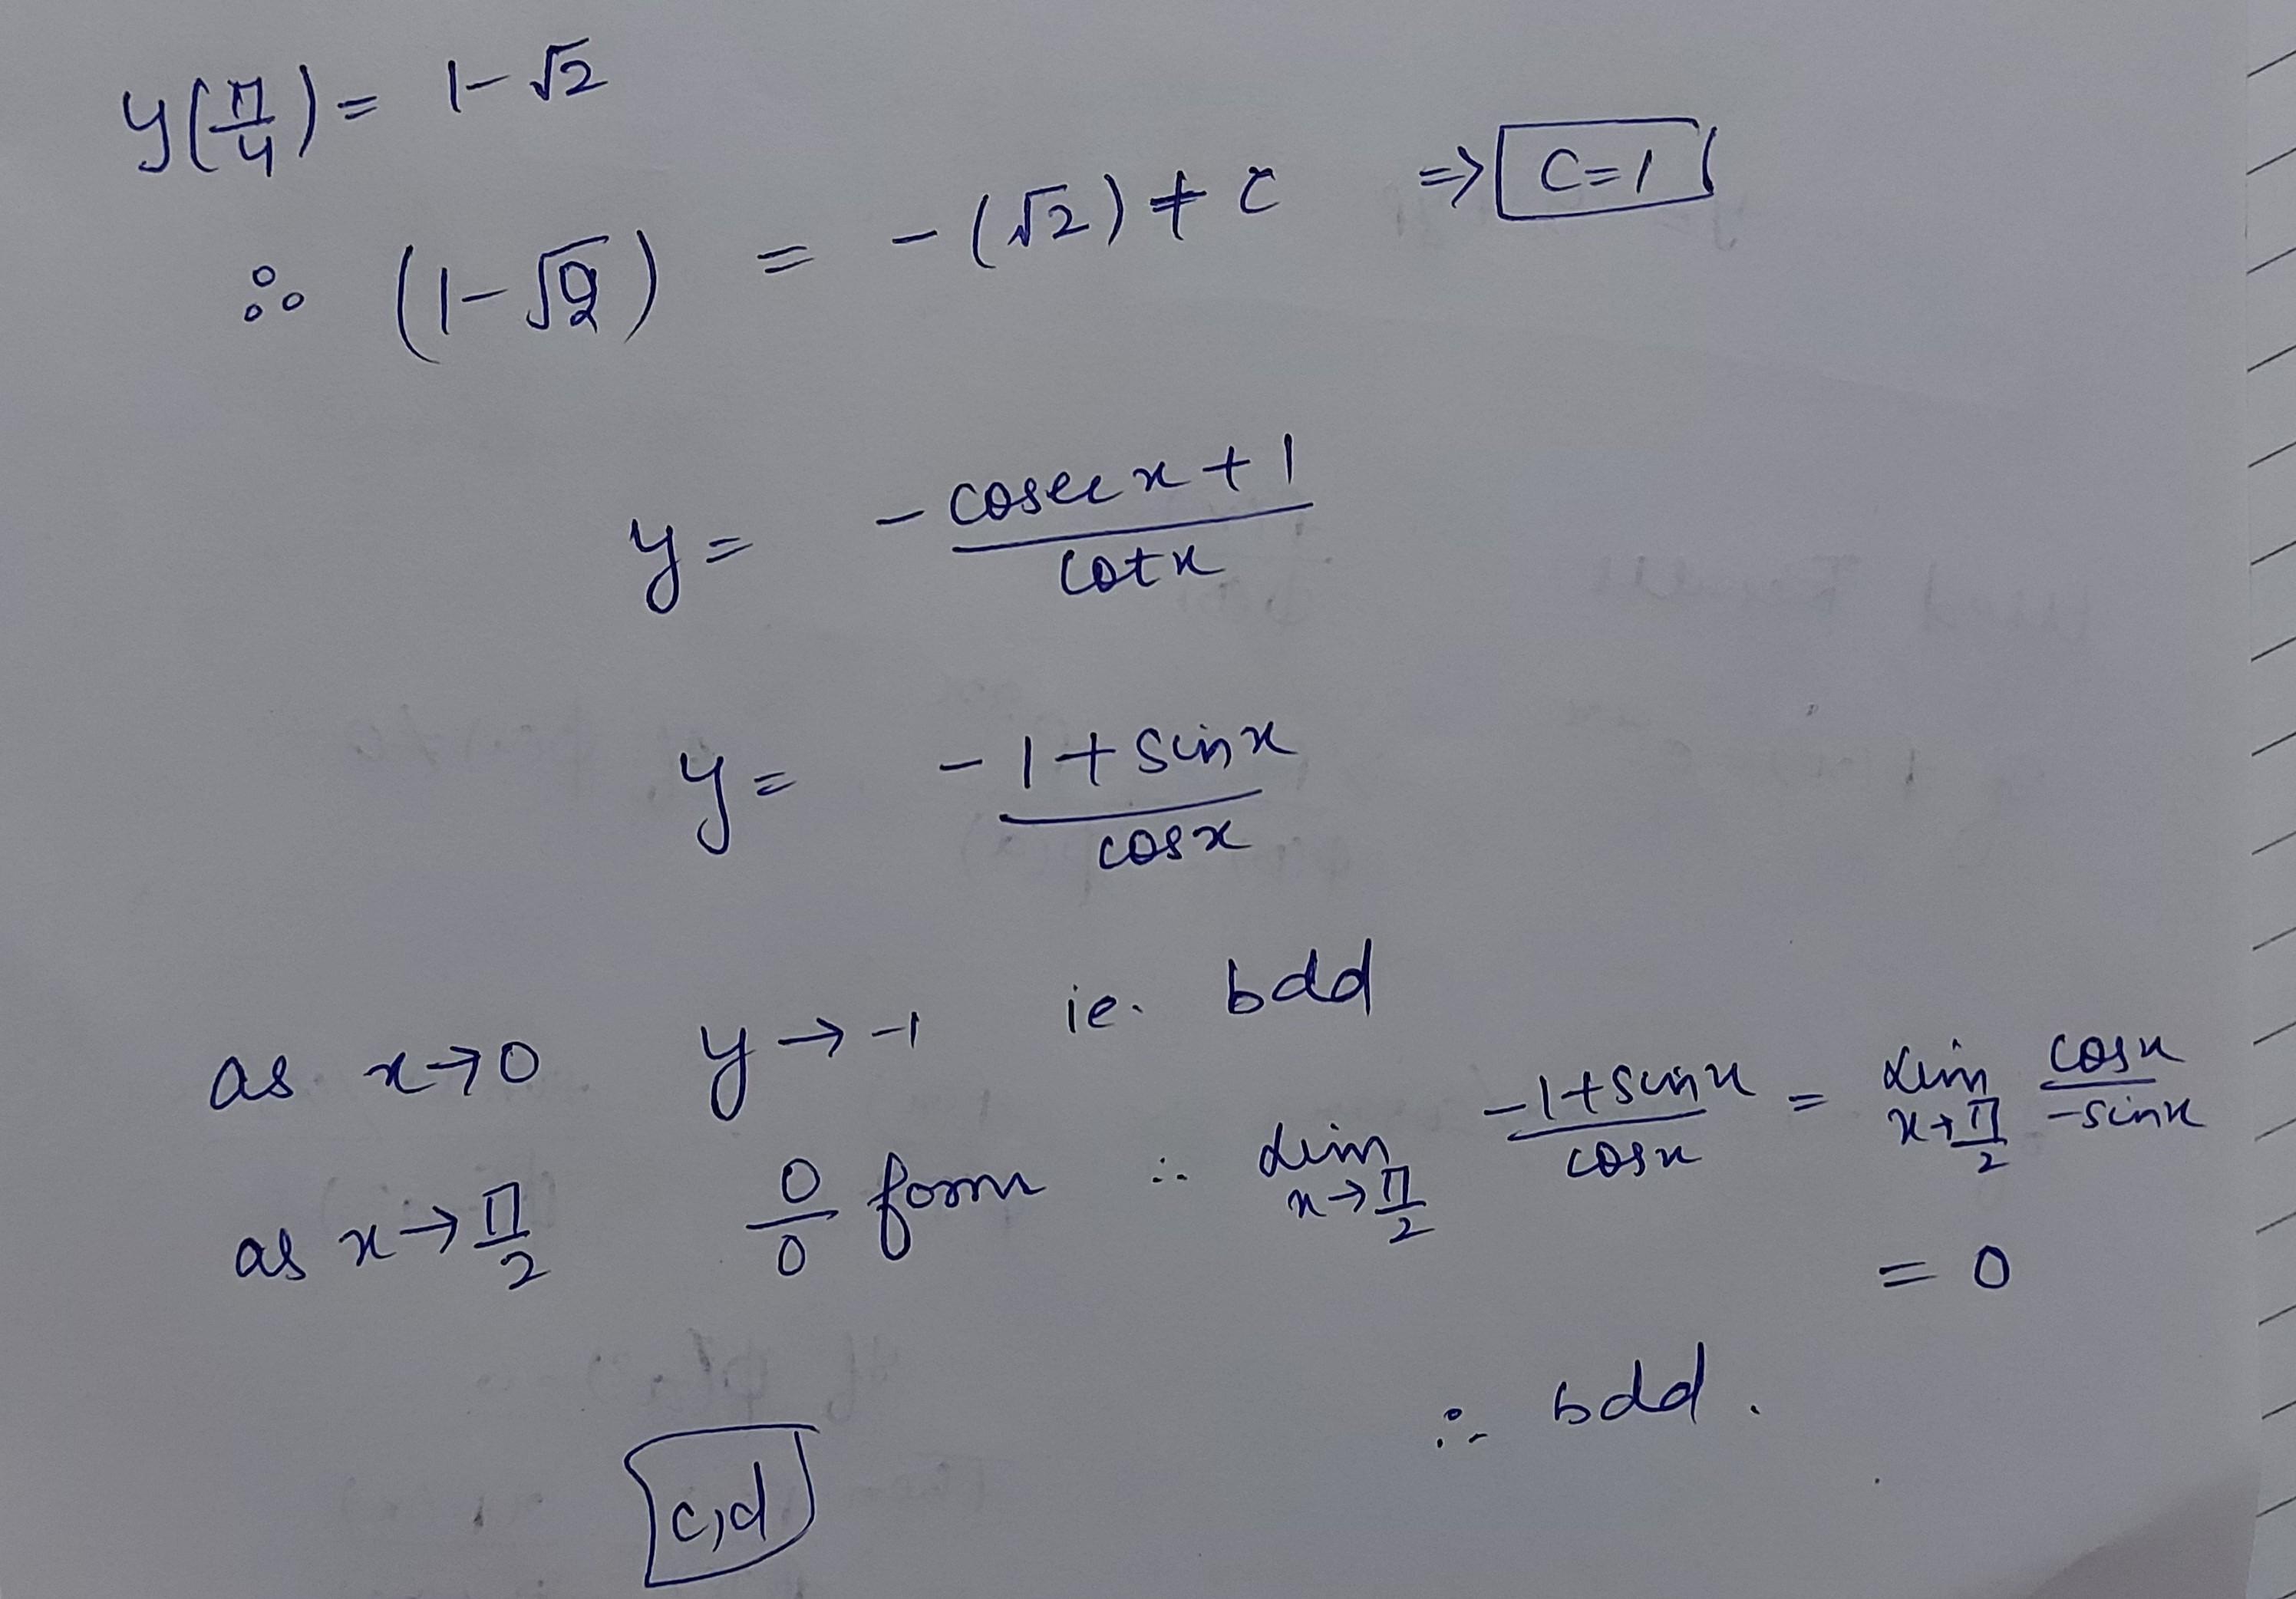 y(π/4) = 1-√2
∴ (1-√2) = -(√2) + c ⇒ C=1
y = (-cosec x + 1)/(cot x)
y = (-1 + sin x)/(cos x)
as x→0 y → -1 ie. bdd
as x→π/2 0/0 form ∴ lim x→π/2 (-1+sin x)/(cos x) = lim x→π/2 (cos x)/(-sin x)
= 0
∴ bdd.
c,d